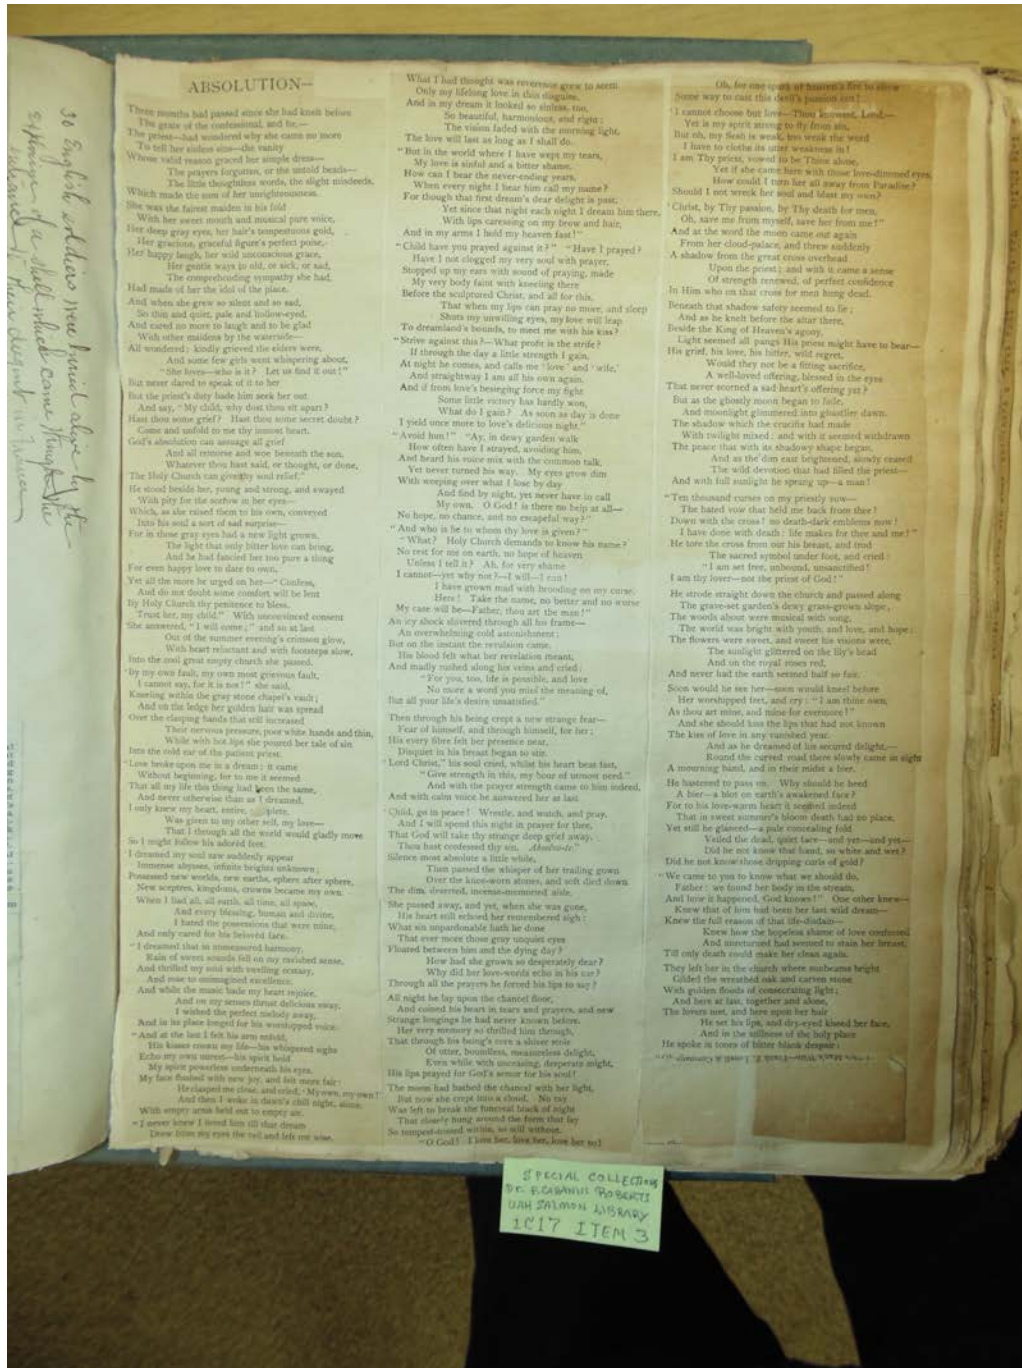 ABSOLUTION—
Three months had passed since she had knelt before
The grate of the confessional, and he,—
The priest—had wondered why she came no more
To tell her sinless sins—the vanity
Whose valid reason graced her simple dress—
The prayers forgotten, or the untold beads—
The little thoughtless words, the slight misdeeds,
Which made the sum of her unrighteousness.
She was the fairest maiden in his fold
With her sweet mouth and musical pure voice,
Her deep gray eyes, her hair's tempestuous gold,
Her gracious, graceful figure's perfect poise,
Her happy laugh, her wild unconscious grace,
Her gentle ways to old, or sick, or sad,
The comprehending sympathy she had,
Had made of her the idol of the place.
And when she grew so silent and so sad,
So thin and quiet, pale and hollow-eyed,
And cared no more to laugh and to be glad
With other maidens by the waterside—
All wondered; kindly grieved the elders were,
And some few girls went whispering about,
"She loves—who is it? Let us find it out!"
But never dared to speak of it to her
But the priest's duty bade him seek her out
And say, "My child, why dost thou sit apart?
Hast thou some grief? Hast thou some secret doubt?
Come and unfold to me thy inmost heart.
God's absolution can assuage all grief
And all remorse and woe beneath the sun.
Whatever thou hast said, or thought, or done,
The Holy Church can give thy soul relief."
He stood beside her, young and strong, and swayed
With pity for the sorrow in her eyes—
Which, as she raised them to his own, conveyed
Into his soul a sort of sad surprise—
For in those gray eyes had a new light grown,
The light that only bitter love can bring,
And he had fancied her too pure a thing
For even happy love to dare to own.
Yet all the more he urged on her—"Confess,
And do not doubt some comfort will be lent
By Holy Church thy penitence to bless.
Trust her, my child." With unconvinced consent
She answered, "I will come;" and so at last
Out of the summer evening's crimson glow,
With heart reluctant and with footsteps slow,
Into the cool great empty church she passed.
"By my own fault, my own most grievous fault,
I cannot say, for it is not!" she said,
Kneeling within the gray stone chapel's vault;
And on the ledge her golden hair was spread
Over the clasping hands that still increased
Their nervous pressure, poor white hands and thin,
While with hot lips she poured her tale of sin
Into the cold ear of the patient priest.
"Love broke upon me in a dream; it came
Without beginning, for to me it seemed
That all my life this thing had been the same,
And never otherwise than as I dreamed.
I only knew my heart, entire,
Was given to my other self, my love—
That I through all the world would gladly move
So I might follow his adored feet.
I dreamed my soul saw suddenly appear
Immense abysses, infinite heights unknown;
Possessed new worlds, new earths, sphere after sphere,
New sceptres, kingdoms, crowns became my own.
When I had all, all earth, all time, all space,
And every blessing, human and divine,
I hated the possessions that were mine,
And only cared for his beloved face.
"I dreamed that in unmeasured harmony,
Rain of sweet sounds fell on my ravished sense,
And thrilled my soul with swelling ecstasy,
And rose to unimagined excellence.
And while the music bade my heart rejoice,
And on my senses thrust delicious sway,
I wished the perfect melody away,
And in its place longed for his worshipped voice.
"And at the last I felt his arm enfold,
His kisses crown my life—his whispered sighs
Echo my own unrest—his spirit hold
My spirit powerless underneath his eyes.
My face flushed with new joy, and felt more fair:
He clasped me close, and cried, 'My own, my own!'
And then I woke in dawn's chill night, alone,
With empty arms held out to empty air.
"I never knew I loved him till that dream
Drew from my eyes the veil and left me wise.
What I had thought was reverence grew to seem
Only my lifelong love in thin disguise.
And in my dream it looked so sinless, too,
So beautiful, harmonious, and right;
The vision faded with the morning light,
The love will last as long as I shall do.
"But in the world where I have wept my tears,
My love is sinful and a bitter shame.
How can I bear the never-ending years,
When every night I hear him call my name?
For though that first dream's dear delight is past,
Yet since that night each night I dream him there,
With lips caressing on my brow and hair,
And in my arms I hold my heaven fast!"
"Child have you prayed against it?" "Have I prayed?
Have I not clogged my very soul with prayer,
Stopped up my ears with sound of praying, made
My very body faint with kneeling there
Before the sculptured Christ, and all for this,
That when my lips can pray no more, and sleep
Shuts my unwilling eyes, my love will leap
To dreamland's bounds, to meet me with his kiss?
"Strive against this?—What profit is the strife?
If through the day a little strength I gain,
At night he comes, and calls me 'love' and 'wife,'
And straightway I am all his own again.
And if from love's besieging force my fight
Some little victory has hardly won,
What do I gain? As soon as day is done
I yield once more to love's delicious night."
"Avoid him!" "Ay, in dewy garden walk
How often have I strayed, avoiding him,
And heard his voice mix with the common talk,
Yet never turned his way. My eyes grow dim
With weeping over what I lose by day
And find by night, yet never have to call
My own. O God! is there no help at all—
No hope, no chance, and no escapeful way?"
"And who is he to whom thy love is given?"
"What? Holy Church demands to know his name?
No rest for me on earth, no hope of heaven
Unless I tell it? Ah, for very shame
I cannot—yet why not?—I will—I can!
I have grown mad with brooding on my curse.
Here! Take the name, no better and no worse
My case will be—Father, thou art the man!"
An icy shock shivered through all his frame—
An overwhelming cold astonishment;
But on the instant the revulsion came,
His blood felt what her revelation meant,
And madly rushed along his veins and cried:
"For you, too, life is possible, and love
No more a word you miss the meaning of,
But all your life's desire unsatisfied."
Then through his being crept a new strange fear—
Fear of himself, and through himself, for her;
His every fibre felt her presence near,
Disquiet in his breast began to stir.
"Lord Christ," his soul cried, whilst his heart beat fast,
"Give strength in this, my hour of utmost need."
And with the prayer strength came to him indeed,
And with calm voice he answered her at last
Child, go in peace! Wrestle, and watch, and pray,
And I will spend this night in prayer for thee,
That God will take thy strange deep grief away,
Thou hast confessed thy sin. Absolvo-te"
Silence most absolute a little while,
Then passed the whisper of her trailing gown
Over the knee-worn stones, and soft died down
The dim, deserted, incense-memoried aisle.
She passed away, and yet, when she was gone,
His heart still echoed her remembered sigh:
What sin unpardonable hath he done
That ever more those gray unquiet eyes
Floated between him and the dying day?
How had she grown so desperately dear?
Why did her love-words echo in his ear?
Through all the prayers he forced his lips to say?
All night he lay upon the chancel floor,
And coined his heart in tears and prayers, and new
Strange longings he had never known before.
Her very memory so thrilled him through,
That through his being's core a shiver stole
Of utter, boundless, measureless delight,
Even while with unceasing, desperate might,
His lips prayed for God's armor for his soul!
The moon had bathed the chancel with her light,
But now she crept into a cloud. No ray
Was left to break the funereal black of night
That closely hung around the form that lay
So tempest-tossed within, so still without.
"O God! I love her, love her, love her so!
Oh, for one spark of heaven's fire to show
Some way to cast this devil's passion out!
"I cannot choose but love—Thou knowest, Lord,—
Yet is my spirit strong to fly from sin,
But oh, my flesh is weak, too weak the word
I have to clothe its utter weakness in!
I am Thy priest, vowed to be Thine alone,
Yet if she came here with those love-dimmed eyes,
How could I turn her all away from Paradise?
Should I not wreck her soul and blast my own?
"Christ, by Thy passion, by Thy death for men,
Oh, save me from myself, save her from me!"
And at the word the moon came out again
From her cloud-palace, and threw suddenly
A shadow from the great cross overhead
Upon the priest; and with it came a sense
Of strength renewed, of perfect confidence
In Him who on that cross for men hung dead.
Beneath that shadow safety seemed to lie;
And as he knelt before the altar there,
Beside the King of Heaven's agony,
Light seemed all pangs His priest might have to bear—
His grief, his love, his bitter, wild regret,
Would they not be a fitting sacrifice,
A well-loved offering, blessed in the eyes
That never scorned a sad heart's offering yet?
But as the ghostly moon began to fade,
And moonlight glimmered into ghostlier dawn,
The shadow which the crucifix had made
With twilight mixed; and with it seemed withdrawn
The peace that with its shadowy shape began,
And as the dim east brightened, slowly ceased
The wild devotion that had filled the priest—
And with full sunlight he sprang up—a man!
"Ten thousand curses on my priestly vow—
The hated vow that held me back from thee!
Down with the cross! no death-dark emblems now!
I have done with death: life makes for thee and me!"
He tore the cross from out his breast, and trod
The sacred symbol under foot, and cried:
"I am set free, unbound, unsanctified!
I am thy lover—not the priest of God!"
He strode straight down the church and passed along
The grave-set garden's dewy grass-grown slope,
The woods about were musical with song,
The world was bright with youth, and love, and hope;
The flowers were sweet, and sweet his visions were,
The sunlight glittered on the lily's head
And on the royal roses red,
And never had the earth seemed half so fair.
Soon would he see her—soon would kneel before
Her worshipped feet, and cry: "I am thine own,
As thou art mine, and mine for evermore!"
And she should kiss the lips that had not known
The kiss of love in any vanished year.
And as he dreamed of his secured delight,—
Round the curved road there slowly came in sight
A mourning band, and in their midst a bier.
He hastened to pass on. Why should he heed
A bier—a blot on earth's awakened face?
For to his love-warm heart it seemed indeed
That in sweet summer's bloom death had no place.
Yet still he glanced—a pale concealing fold
Veiled the dead, quiet face—and yet—and yet—
Did he not know that hand, so white and wet?
Did he not know those dripping curls of gold?
"We came to you to know what we should do,
Father: we found her body in the stream,
And how it happened, God knows!" One other knew—
Knew that of him had been her last wild dream—
Knew the full reason of that life-disdain—
Knew how the hopeless shame of love confessed
And unreturned had seemed to stain her breast,
Till only death could make her clean again.
They left her in the church where sunbeams bright
Gilded the wreathed oak and carven stone
With golden floods of consecrating light;
And here at last, together and alone,
The lovers met, and here upon her hair
He set his lips, and dry-eyed kissed her face,
And in the stillness of the holy place
He spoke in tones of bitter blank despair:
30 English soldiers were buried alive by the
explosion of a shell which came through the
SPECIAL COLLECTIONS
DR. F. CABANIS ROBERTS
UAH SALMON LIBRARY
1C17 ITEM 3